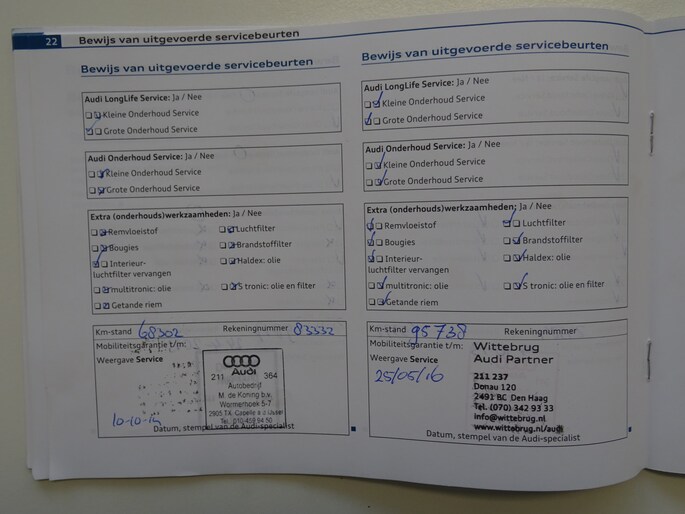 22 Bewijs van uitgevoerde servicebeurten
Bewijs van uitgevoerde servicebeurten
Audi LongLife Service: Ja / Nee
Kleine Onderhoud Service
Grote Onderhoud Service
Audi Onderhoud Service: Ja / Nee
Kleine Onderhoud Service
Grote Onderhoud Service
Extra (onderhouds)werkzaamheden: Ja / Nee
Remvloeistof Luchtfilter
Bougies Brandstoffilter
Interieur- Haldex: olie
luchtfilter vervangen
multitronic: olie S tronic: olie en filter
Getande riem
Km-stand 68302 Rekeningnummer 83332
Mobiliteitsgarantie t/m:
Weergave Service
Audi
211 364
Autobedrijf
M. de Koning b.v.
Wormerhoek 5-7
2905 TX Capelle a d IJssel
Tel. 010-458 94 50
10-10-14
Datum, stempel van de Audi-specialist
Bewijs van uitgevoerde servicebeurten
Audi LongLife Service: Ja / Nee
Kleine Onderhoud Service
Grote Onderhoud Service
Audi Onderhoud Service: Ja / Nee
Kleine Onderhoud Service
Grote Onderhoud Service
Extra (onderhouds)werkzaamheden: Ja / Nee
Remvloeistof Luchtfilter
Bougies Brandstoffilter
Interieur- Haldex: olie
luchtfilter vervangen
multitronic: olie S tronic: olie en filter
Getande riem
Km-stand 95738 Rekeningnummer
Mobiliteitsgarantie t/m:
Weergave Service
25/05/16
Wittebrug
Audi Partner
211 237
Donau 120
2491 BC Den Haag
Tel. (070) 342 93 33
info@wittebrug.nl
www.wittebrug.nl/audi
Datum, stempel van de Audi-specialist